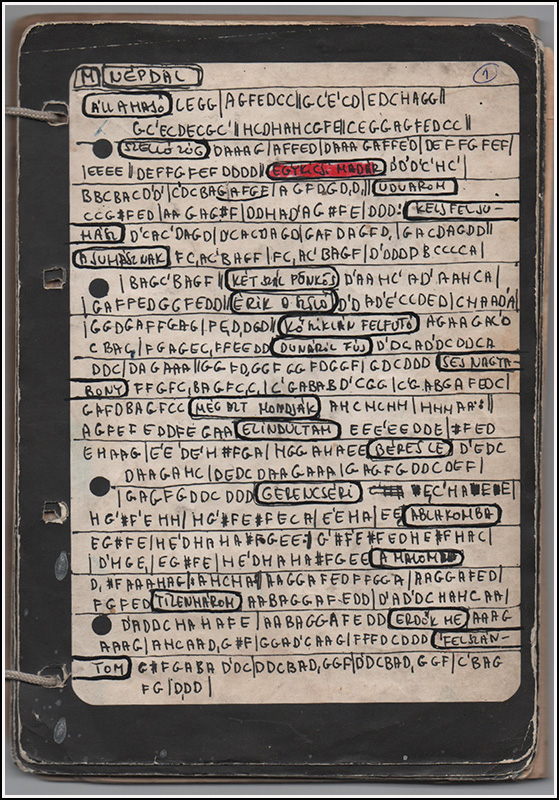 M NÉPDAL 1
ÁLLAHAJÓ CEGG|AGFEDCC||GC'E'CD|EDCHAGG||
GC'ECDECGC'||HCDHAHCGFE||CEGGAGFEDCC||
SZELLŐ ZÚG DAAAG|AFFED|DAAAGAFFED|DEFFGFEF|
|EEEE||DEFFGFEFDDDD|| EGYKICSI MADÁR DDD'C'HC'|
BBCBACD'D'|C'DCBAGAFGF|AGFDGD,D,|| UDVAROM
CCG#FED|AAGAG#F|DDHAD'AG#FE|DDD. KELJ FEL JU-
HÁSZ D'CAC'DAGD|D'CAC'DAGD|GAFDAGFD,|GACDAGDD||
A JUHÁSZNAK FC,AC'BAGF|FC,AC'BAGF|D'DDDDBCCCCA|
|BAGC'BAGF|| KÉT SZÁL PÜNKÖS D'AAHC'AD'AAHCA|
|GAFFEDGGFEDD|| ÉRIK A SZŐLŐ D'DAD'E'CCDED|CHAADA|
|GGDGAFFGAG|FED,DGD|| KŐ SZIKLÁN FELFUTÓ AGAAGAC'O
CBAG|FGAGEC,FFEEDD DUNÁRÓL FÚJ D'DCAD'DCDDCA
DDC|DAGAAA||GGFD,GGFGGFDGGF|GDCDDD SEJ NAGYA-
BONY FFGFC,BAGFC,C,|C'GABABD'CGG|C'GABGAFEDC|
GAFDBAGFCC MÉG AZT MONDJÁK AHCHCHH|HHHAA'S||
AGFEFEDDFEGAA ELINDULTAM EEE'EEDDE|#FED
EHAAG|E'E'DE'H#FGA|HGGAHAEE BÉRES LE D'EDC
DAAGAHC|DEDCDAAGAAA|GAGFGDDCDEF|
|GAGFGDDCDDD GERENCSÉRI EC'HA
HG'#F'EHH|HG'#FE#FECA|E'EHA|EE ABLAKOMBA
EG#FE|HE'DHAHA#FGEE|G'#FE#FEDHE#FHAC|
D'HGE,|EG#FE|HE'DHAHA#FGEE A MALOMBA
D,#FAAAHAG|AHCHA|AAGGAFEDFFGGA|AAGGAFED|
FGFED TIZENHÁROM AABAGGAFEDD|D'AD'DCHAHCAA|
D'ADDCHAHAFE|AABAGGAFEDD ERDŐK HE AAAG
AAAG|AHCAAD,G#F|GGAD'CAAG|FFFDCDDD FELSZÁN-
TOM G#FGABAD'DC|DDCBAD,GGF|D'DCBAD,GGF|C'BAG
FG|DDD|